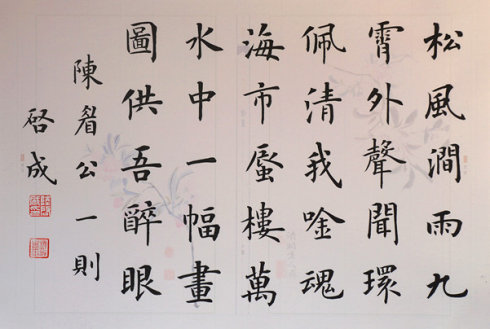 松風澗雨九
霄外聲聞環
佩清我唫魂
海市蜃樓萬
水中一幅畫
圖供吾醉眼
陳睂公一則
啓成